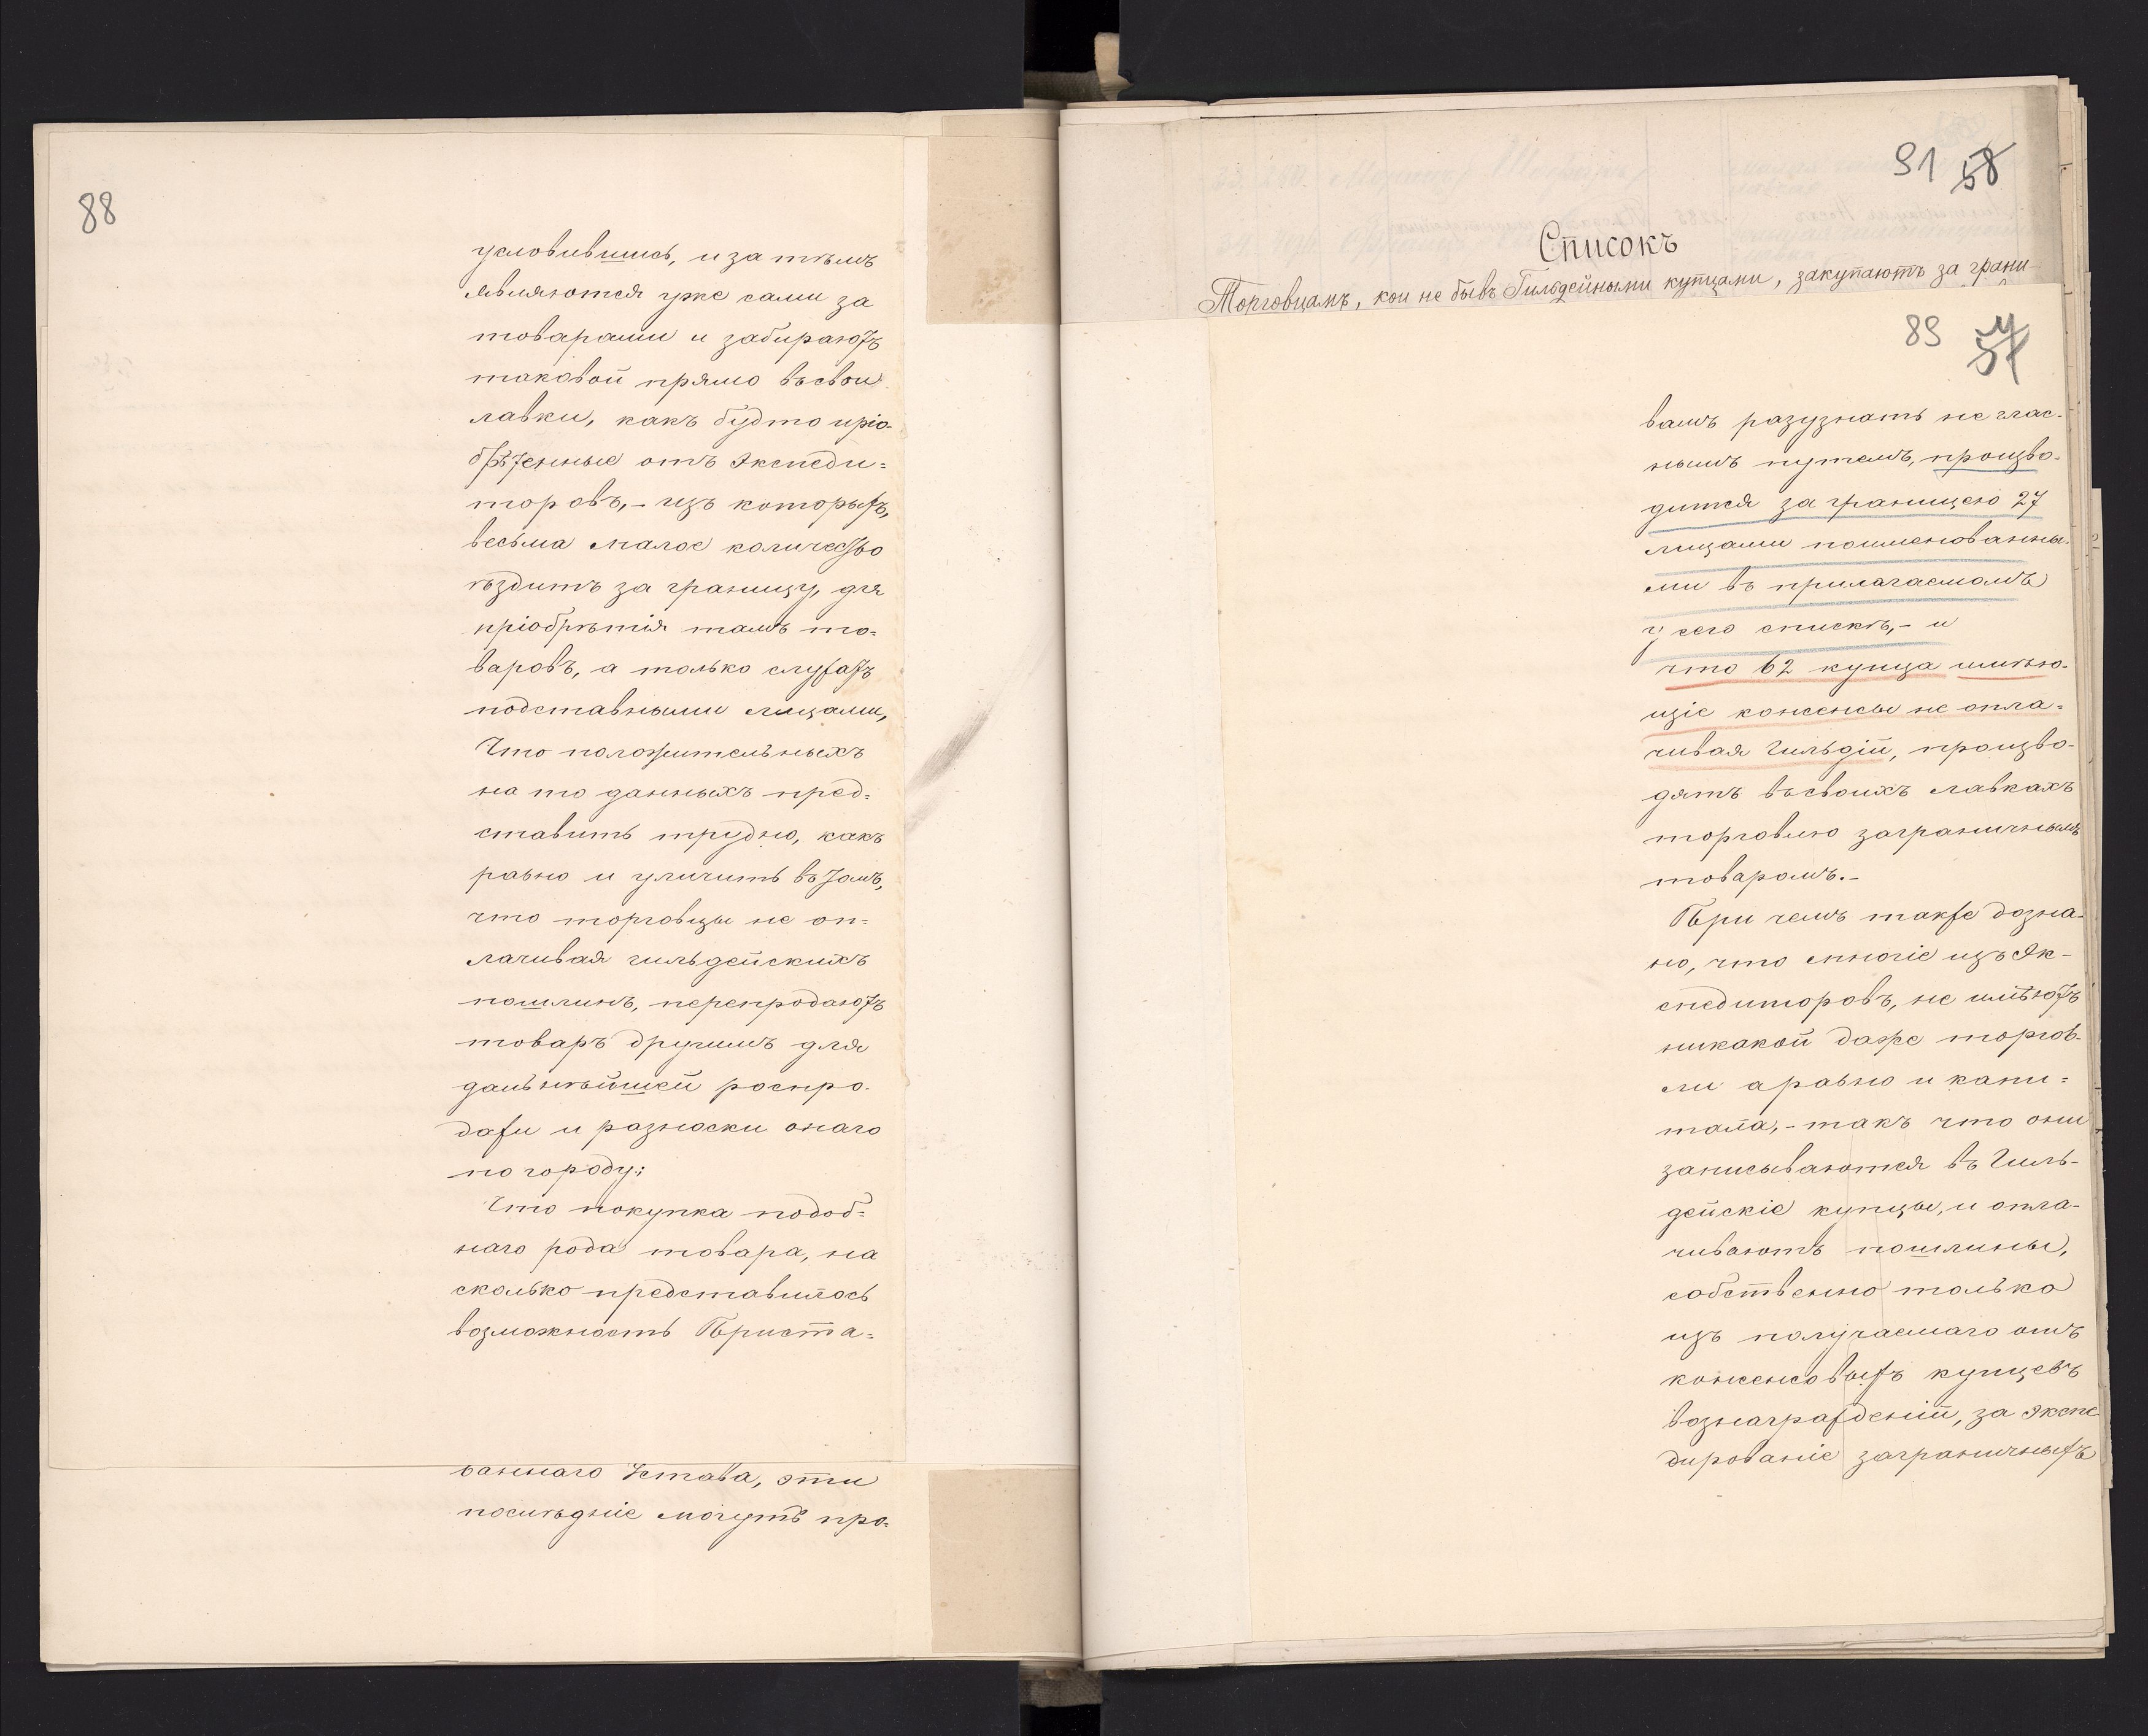 88
условившись, и за тѣмъ
являются уже сами за
товарами и забираютъ
таковой прямо въ свои
лавки, какъ будто пріо-
брѣтенные отъ Экспеди=
торовъ, - изъ которыхъ,
весьма малое количество
ѣздитъ за границу, для
пріобрѣтія тамъ то=
варовъ, а только служатъ
подставными лицами,
Что положительныхъ
на то данныхъ пред=
ставить трудно, какъ
равно и уличить въ томъ,
что торговцы не оп=
лачивая гильдейскихъ
пошлинъ, перепродаютъ
товаръ другимъ для
дальнѣйшей роспро-
дажи и разноски онаго
по городу;
Что покупка подоб=
наго рода товара, на
сколько представилось
возможность Приста=
ваннаго Устава, эти
послѣдніе могутъ про=
91 58
Списокъ
Торговцамъ, кои не бывъ Гильдейными купцами, закупаютъ за грани-
89 57
вамъ разузнать не глас-
нымъ путемъ, произво-
дится за границею 27
лицами поименованны-
ми въ прилагаемомъ
у сего спискѣ, - и
что 62 купца имѣю-
щіе консенсы не опла=
чивая Гильдій, произво-
дятъ въ своихъ лавкахъ
торговлю заграничнымъ
товаромъ.-
При чемъ также дозна-
но, что многіе изъ Эк-
спедиторовъ, не имѣютъ
никакой даже торгов-
ли а равно и капи=
тала, - такъ что они
записываются въ Гиль-
дейскіе купцы, и опла-
чиваютъ пошлины,
собственно только
изъ получаемаго отъ
консенсовыхъ купцевъ
вознагражденій, за экспе
дированіе заграничныхъ